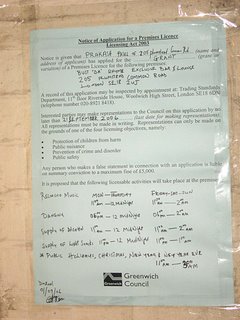 Notice of Application for a Premises Licence
Licensing Act 2003
Notice is given that PRAKASH PAUL of 205 plumstead Common Rd (name and
address of applicant) has applied for the GRANT (grant or
variation) of a Premises Licence for the following premises:
205 PLUMSTEAD COMMON ROAD
LONDON SE18 2UJ
A record of this application may be inspected by appointment at: Trading Standards
Department, 11th floor Riverside House, Woolwich High Street, London SE18 6DN
(telephone number 020 8921 8418).
Interested parties may make representations to the Council on this application by no
later than SEPTEMBER 2006 (last date for making representations).
All representations must be made in writing. Representations can be made on
the grounds of one of the four licensing objectives, namely:
• Protection of children from harm
• Public nuisance
• Prevention of crime and disorder
• Public safety
Any person who makes a false statement in connection with an application is liable
on summary conviction to a maximum fine of £5,000.
It is proposed that the following licensable activities will take place at the premises
RECORDED MUSIC MON - THURSDAY FRIDAY - SUN
11am - 12 midnight 11am - 2am
DANCING
12 midnight
SUPPLY OF ALCOHOL 11am - 12 Midnight 11am - 1am
12 Midnight 11am
* PUBLIC HOLIDAYS, CHRISTMAS, NEW YEAR & NEW YEAR EVE
11am
Greenwich
Council